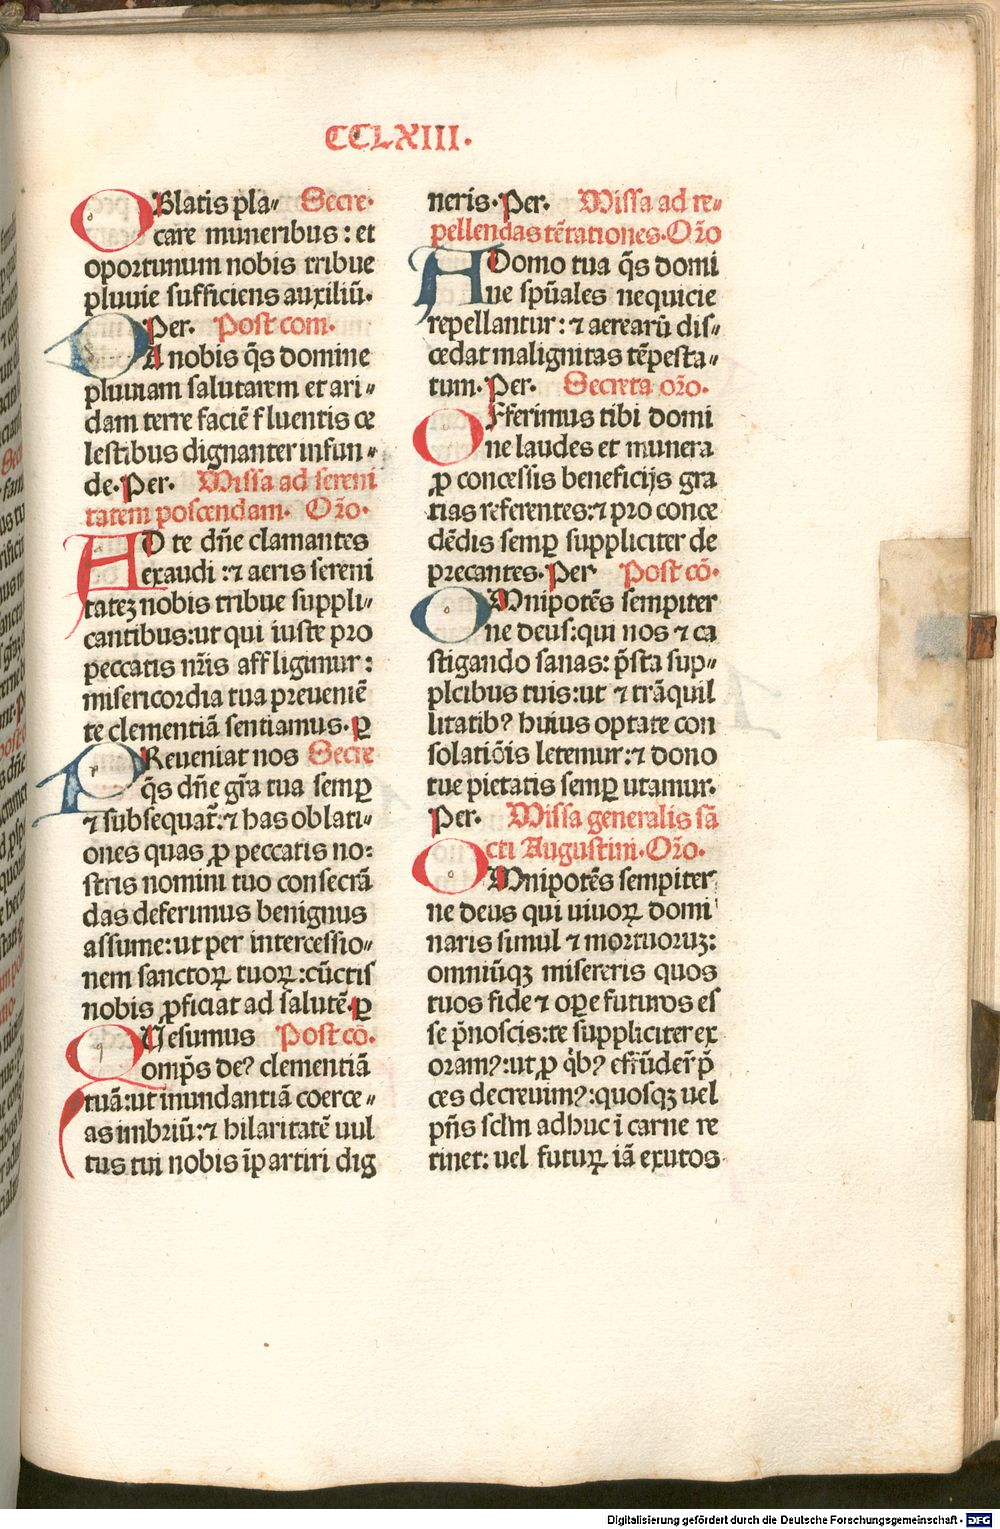 CCLXIII.
OBlatis pla〃 Secre.
care muneribus: et
oportunum nobis tribue
pluuie sufficiens auxiliū.
Per. Post com.
DA nobis q̄s domine
pluuiam salutarem et ari〃
dam terre faciē fluentis ce
lestibus dignanter infun〃
de. Per. Missa ad sereni
tatem poscendam. Or̄o.
AD te dn̄e clamantes
exaudi: ⁊ aeris sereni
tatez nobis tribue suppli〃
cantibus: ut qui iuste pro
peccatis nr̄is affligimur:
misericordia tua preueniē
te clementiā sentiamus. ꝑ
PReueniat nos Secre
q̄s dn̄e gr̄a tua semꝑ
⁊ subsequat̄: ⁊ has oblati〃
ones quas ꝓ peccatis no:
stris nomini tuo consecrā
das deferimus benignus
assume: ut per intercessio〃
nem sanctoꝝ tuoꝝ: cūctis
nobis ꝓficiat ad salutē. ꝑ
QUesumus Post cō.
omp̄s deꝰ clementiā
tuā: ut inundantiā coerce〃
as imbriū: ⁊ hilaritatē uul
tus tui nobis īpartiri dig
neris. Per. Missa ad re〃
pellendas tēptationes. Or̄o
ADomo tua q̄s domi
ne spūales nequicie
repellantur: ⁊ aerearū dis〃
cedat malignitas tēpesta〃
tum. Per. Secreta or̄o.
OFferimus tibi domi
ne laudes et munera
ꝓ concessis beneficijs gra
tias referentes: ⁊ pro conce
dēdis semꝑ suppliciter de
precantes. Per Post cō.
OMnipotēs sempiter
ne deus: qui nos ⁊ ca
stigando sanas: p̄sta sup〃
plcibus tuis: ut ⁊ trāquil
litatibꝰ huius optate con
solatiōis letemur: ⁊ dono
tue pietatis semꝑ utamur.
Per. Missa generalis sā
cti Augustini. Or̄o.
OMnipotēs sempiter
ne deus qui uiuoꝝ domi
naris simul ⁊ mortuoruz:
omniūqꝫ misereris quos
tuos fide ⁊ oꝑe futuros es
se p̄noscis: te suppliciter ex
oramꝰ: ut ꝓ q̇bꝰ effūder̄ p̄
ces decreuimꝰ: quosqꝫ uel
pn̄s sclm̄ adhuc ī carne re
tinet: uel futuꝝ iā exutos
Digitalisierung gefördert durch die Deutsche Forschungsgemeinschaft - DFG